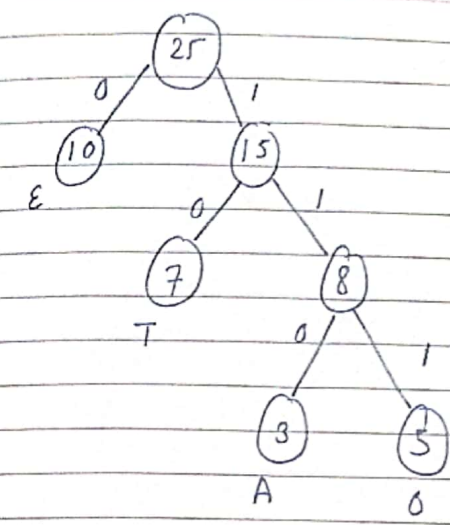 25
0 1
10 15
ε
0 1
7 8
T
0 1
3 5
A 0